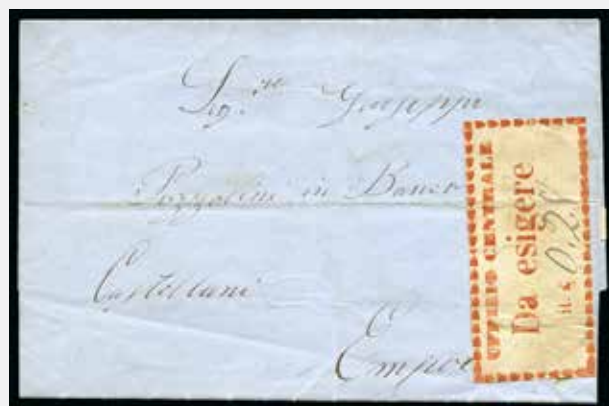 Sig.re Giuseppe
Pozzolini in Banco
Castellani
Empoli
UFFIZIO CENTRALE
Da esigere
it. £ 0.28